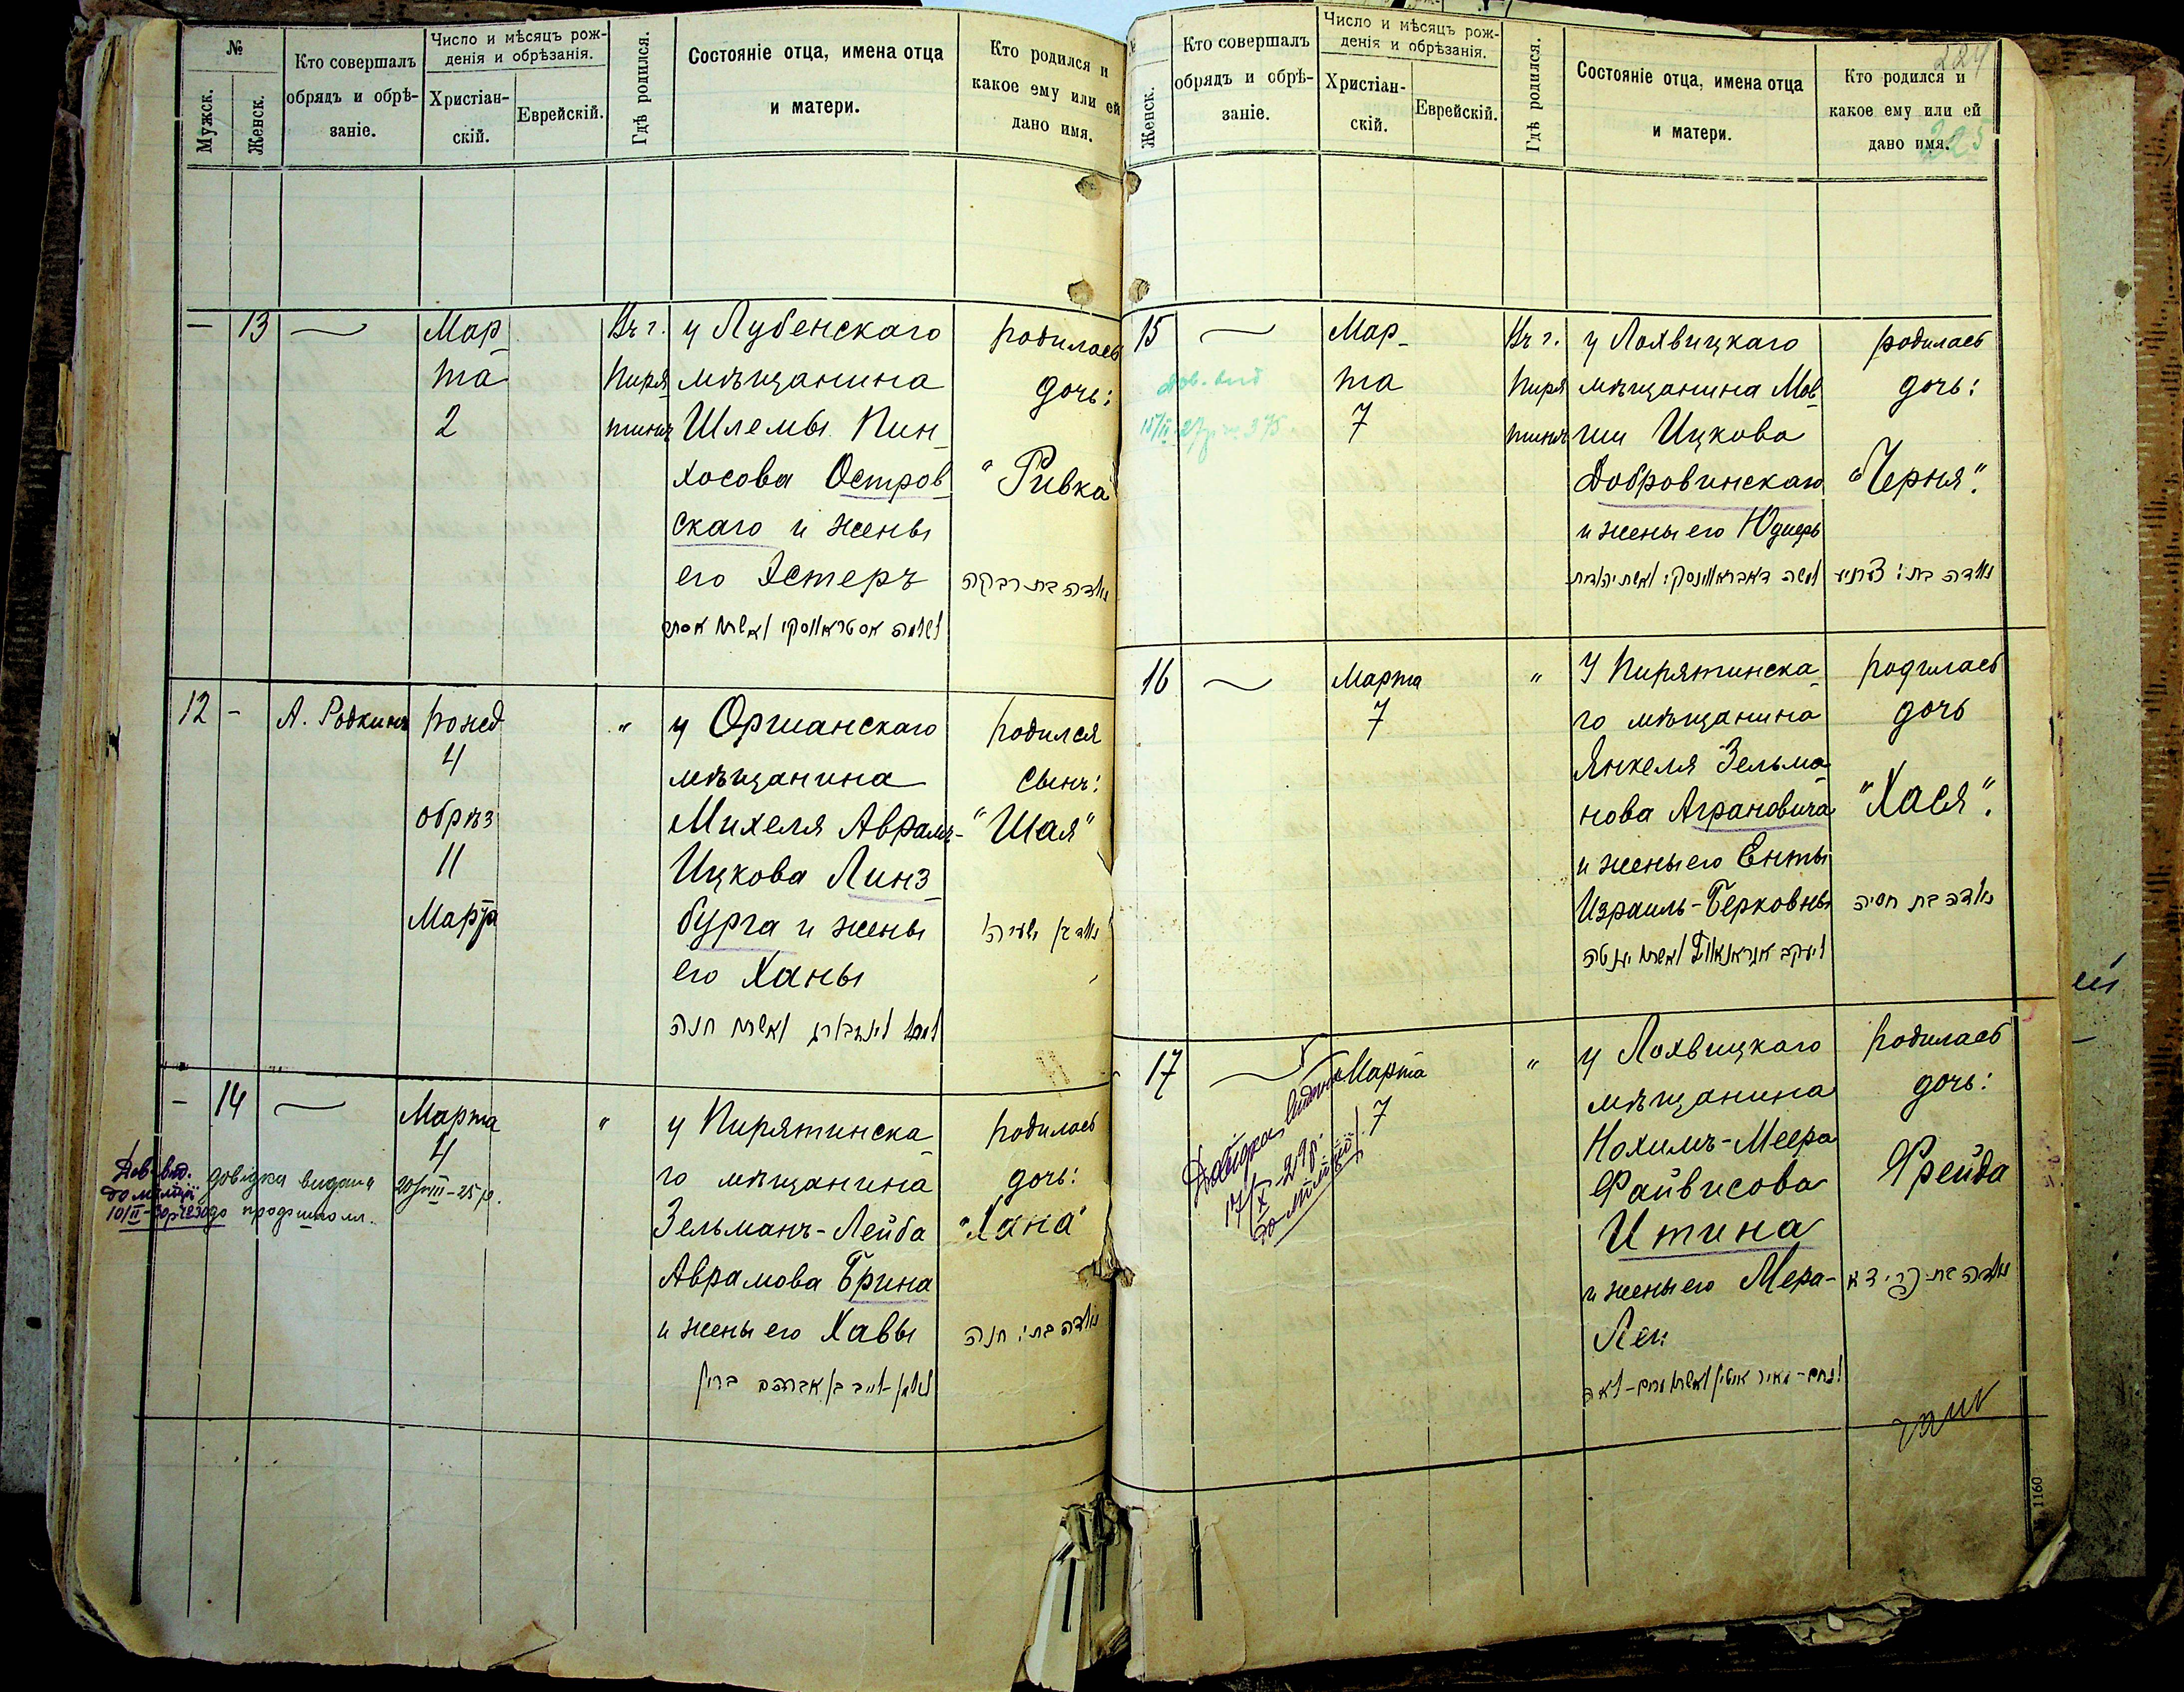 №
Мужск.
Женск.
Кто совершалъ
обрядъ и обрѣ-
заніе.
Число и мѣсяцъ рож-
денія и обрѣзанія.
Христіан-
скій.
Еврейскій.
Гдѣ родился.
Состояніе отца, имена отца
и матери.
Кто родился и
какое ему или ей
дано имя.
— 13 —
Мар_
та
2
Въ г.
Пиря_
тинѣ
у Лубенскаго
мѣщанина
Шлемы Пин_
хосова Остров_
скаго и жены
его Эстеръ
родилась
дочь:
"Ривка"
נולדה בת רבקה
12 -
А. Родкинъ
рожд
4
обрѣз
11
Марта
"
у Оршанскаго
мѣщанина
Михеля Аврамъ-
Ицкова Линз_
бурга и жены
его Ханы
родился
сынъ:
"Шая"
- 14 —
Марта
4
"
у Пирятинска_
го мѣщанина
Зельманъ-Лейба
Аврамова Брина
и жены его Хавы
родилась
дочь:
"Хана"
נולדה בת: חנה
Дов. вид.
до міліції
довідка видана
20/VIII-25 р.
Женск.
Кто совершалъ
обрядъ и обрѣ-
заніе.
Число и мѣсяцъ рож-
денія и обрѣзанія.
Христіан-
скій.
Еврейскій.
Гдѣ родился.
Состояніе отца, имена отца
и матери.
Кто родился и
какое ему или ей
дано имя.
224
225
15 —
Дов. вид
Мар_
та
7
Въ г.
Пиря
тинѣ
у Лохвицкаго
мѣщанина Мов_
ши Ицкова
Добровинскаго
и жены его Юдифь
родилась
дочь:
"Черня".
16 —
Марта
7
"
У Пирятинска_
го мѣщанина
Янкеля Зельма_
нова Аграновича
и жены его Енты
Израиль-Берковны
родилась
дочь
"Хася".
נולדה בת חסיה
17 —
Марта
7
Довідка видана
17/X-29р.
до міліції
"
у Лохвицкаго
мѣщанина
Нохимъ-Меера
Файвисова
Итина
и жены его Мера-
Леи
родилась
дочь:
Фрейда
נולדה בת פריידא
1160